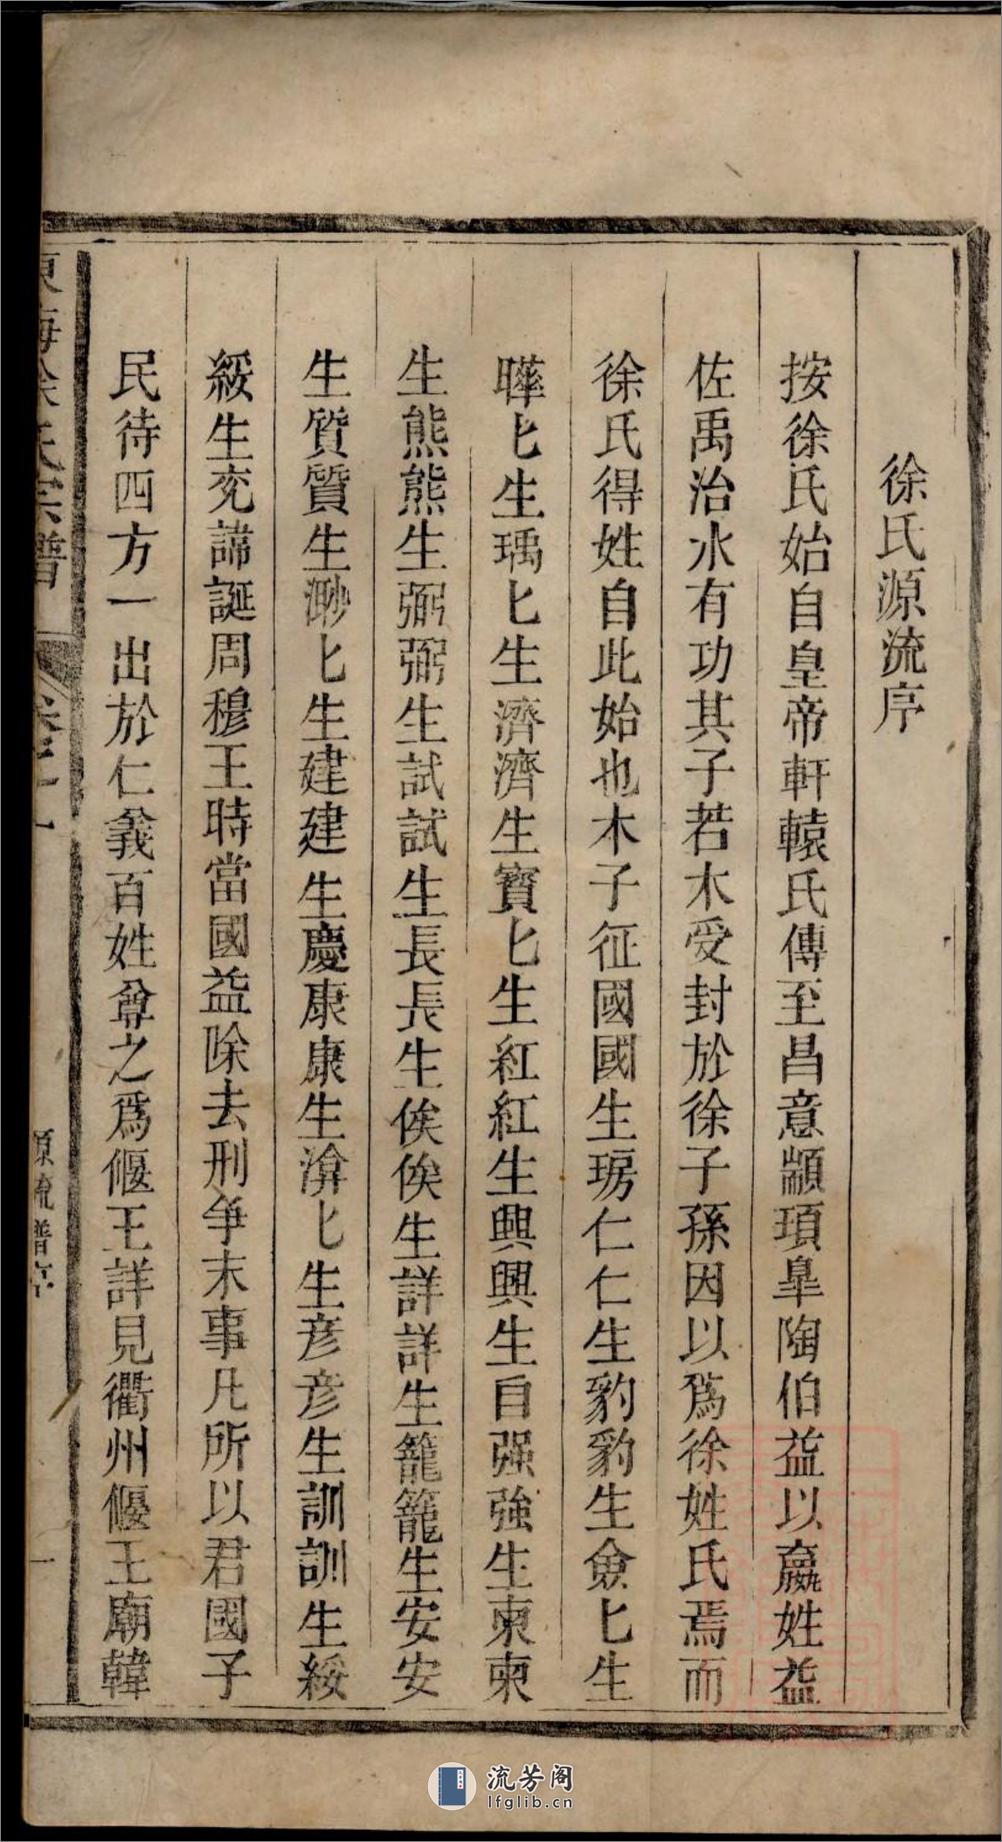 徐氏源流序
按徐氏始自皇帝軒轅氏傳至昌意顓頊臯陶伯益以嬴姓益
佐禹治水有功其子若木受封於徐子孫因以爲徐姓氏焉而
徐氏得姓自此始也木子征國國生琈仁仁生豹豹生僉匕生
曎匕生瑀匕生濟濟生寳匕生紅紅生興興生自强強生柬柬
生熊熊生弼弼生試試生長長生俟俟生詳詳生籠籠生安安
生質質生渺匕生建建生慶康康生渰匕生彦彦生訓訓生綏
綏生兖諱誕周穆王時當國益除去刑爭末事凡所以君國子
民待四方一出於仁義百姓尊之爲偃王詳見衢州偃王廟韓
東海徐氏宗譜 卷之一 源流譜序 一
流芳阁
lfglib.cn